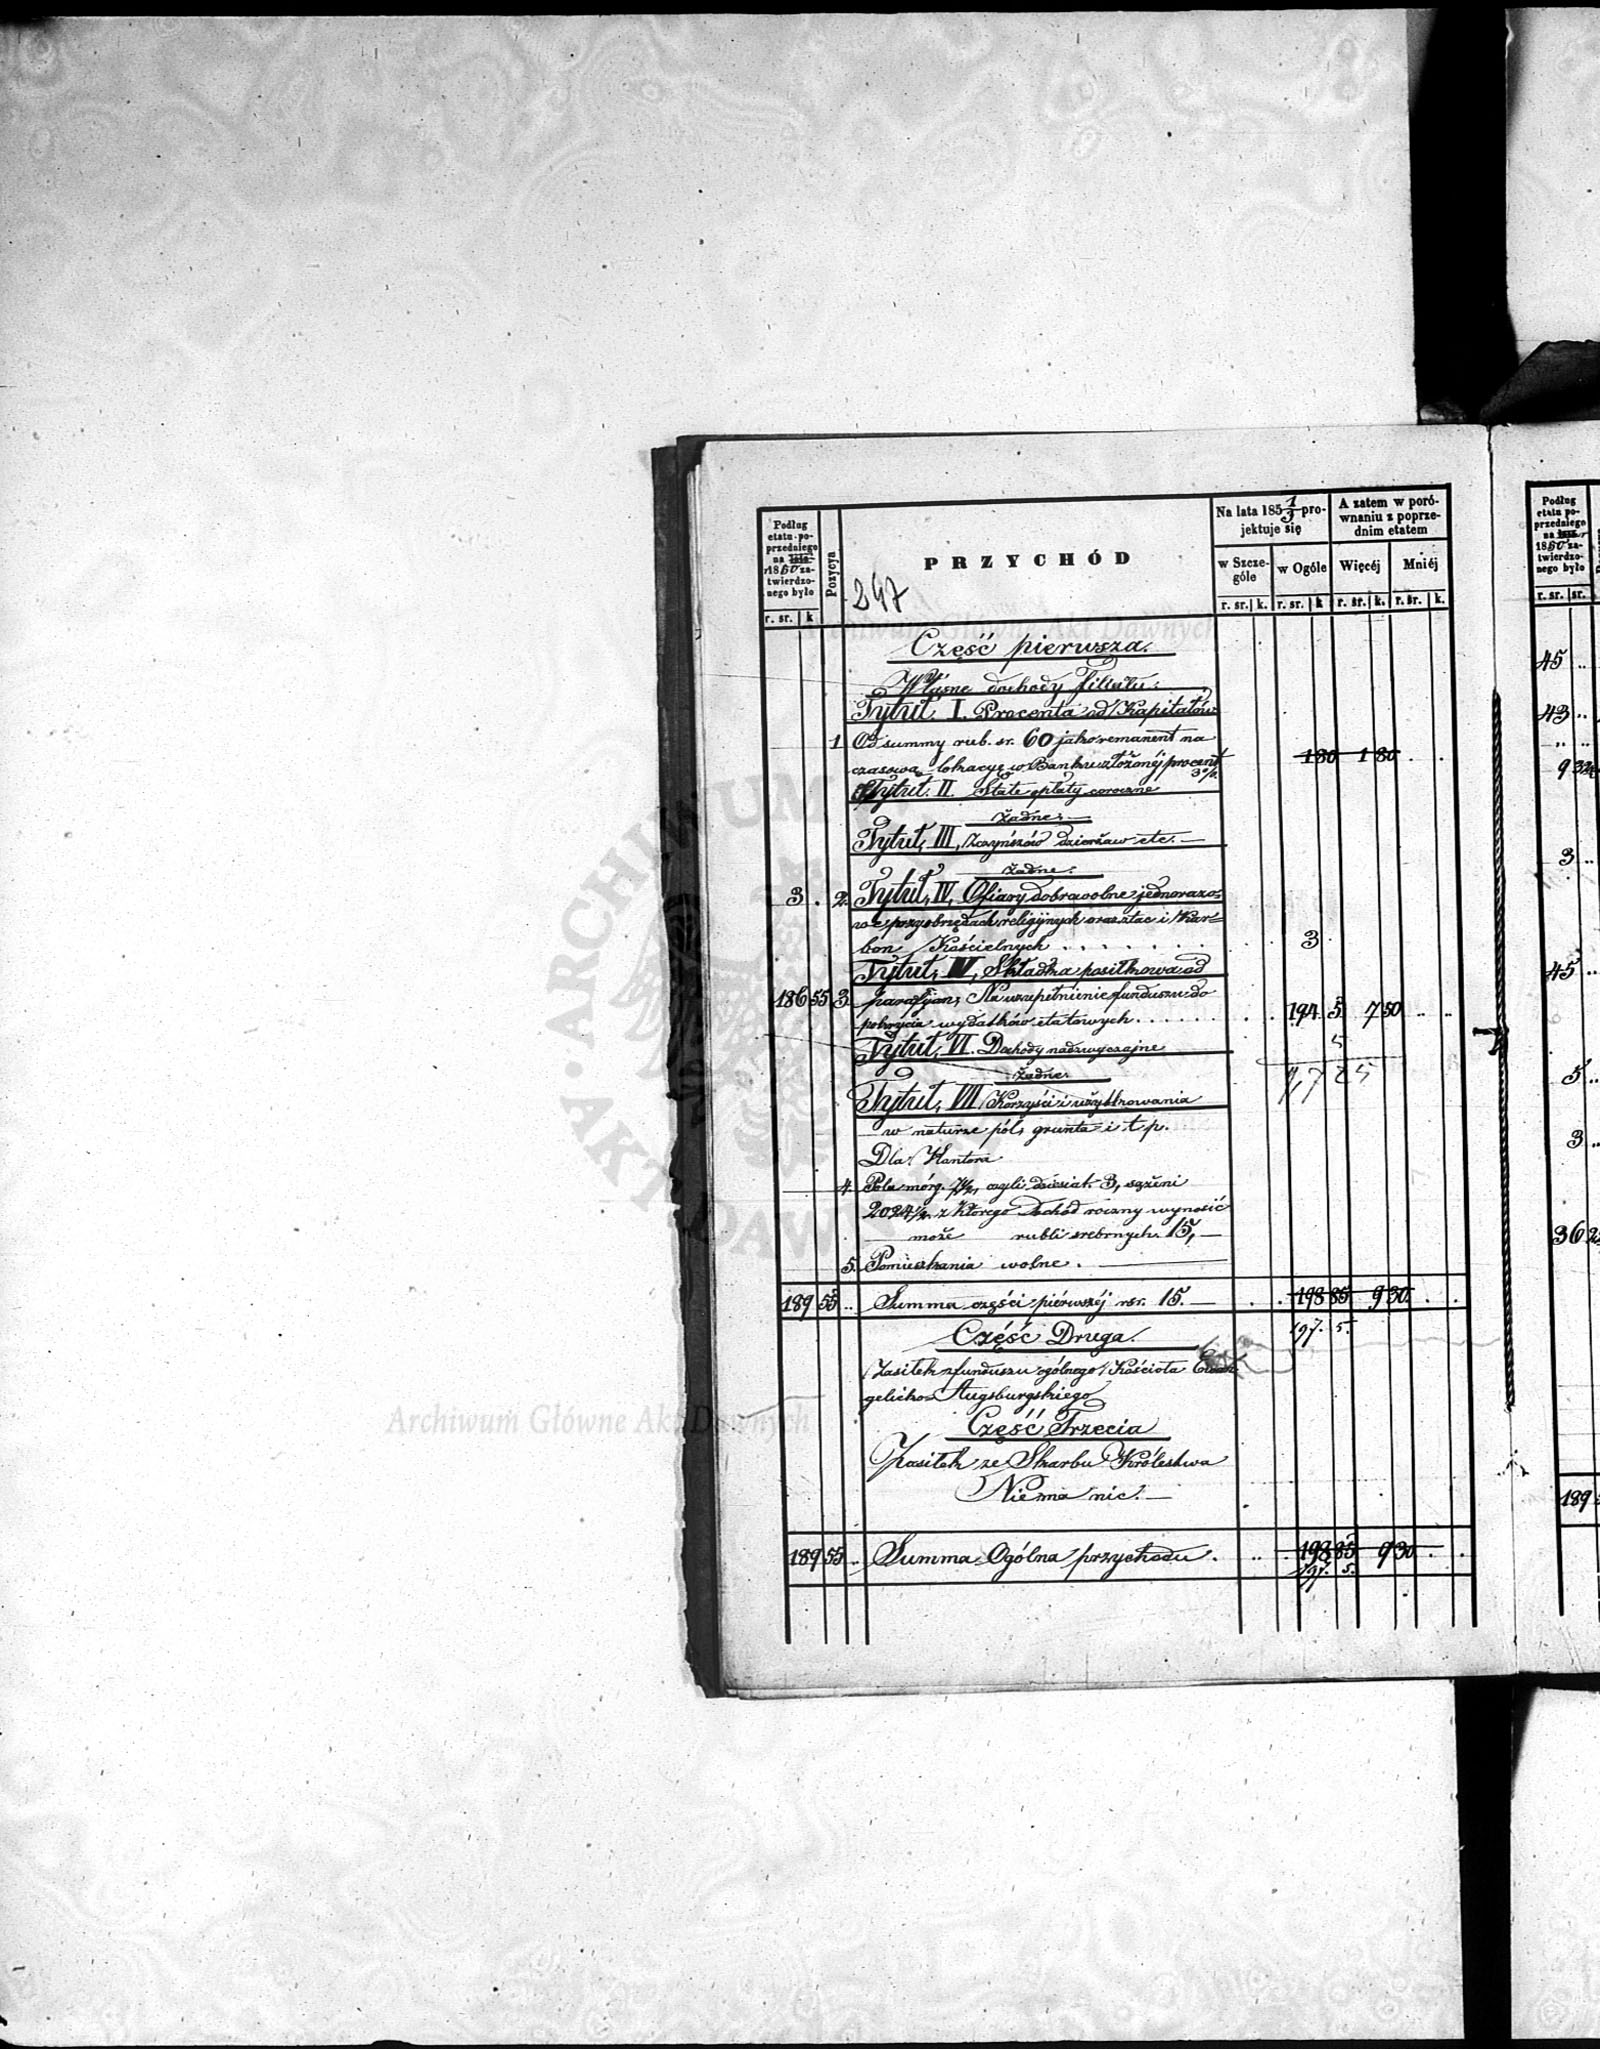 Podług
etatu po-
przedniego
na lata
r 1850 za-
twierdzo-
nego było
r. sr. k
Pozycya
PRZYCHÓD
247
Na lata 185 1/3 pro-
jektuje się
w Szcze-
góle
w Ogóle
r. sr. k. r. sr. k
A zatem w poró-
wnaniu z poprze-
dnim etatem
Więcéj Mniéj
r. sr. k. r. sr. k.
Część pierwsza.
Własne dochody Filiału:
Tytuł. I. Procenta od Kapitałów
1 Od summy rub. sr. 60 jako remanent na
czasową lokacyę w Banku złożonéj procent 1 80 1 80
3%
Tytuł. II. Stałe opłaty coroczne
Żadne.—
Tytuł, III, Z czynszów dzierżaw etc.—
Żadne.
3 . 2. Tytuł, IV, Ofiary dobrowolne jednorazo-
we przy obrzędach religijnych oraz tac i Kar-
bon Kościelnych . . . . . . . 3
Tytuł, V, Składka posiłkowa od
186 55 3. parafijan, Na uzupełnienie funduszu do
pokrycia wydatków etatowych . . . . . . 194 5 7 50
5
Tytuł, VI. Dochody nadzwyczajne
Żadne.
Tytuł, VII Korzyści i użytkowania
w naturze pól, grunta i t p.
Dla Kantora
4. Pola mórg. 7½, czyli dziesiat. 3, sążeni
2024½ z którego dochód roczny wynosić
może rubli srebrnych 15,—
5. Pomieszkania wolne.
189 55 .. Summa części piérwszéj rsr. 15.— 198 85 9 30
197. 5.
Część Druga.
Zasiłek z funduszu ogólnego Kościoła Ewan-
gelicko Augsburgskiego
Część Trzecia
Zasiłek ze Skarbu Królestwa
Niema nic.—
189 55 .. Summa Ogólna przychodu . 198 85 9 30
197. 5.
Podług
etatu po-
przedniego
na lata
1850 za-
twierdzo-
nego było
r. sr. sr.
45 ..
43 ..
.. ..
9
3 ..
45 ..
5 ..
3 ..
36
189
ARCHIWUM
AKT DAW
Archiwum Główne Akt Dawnych
Archiwum Główne Akt Dawnych